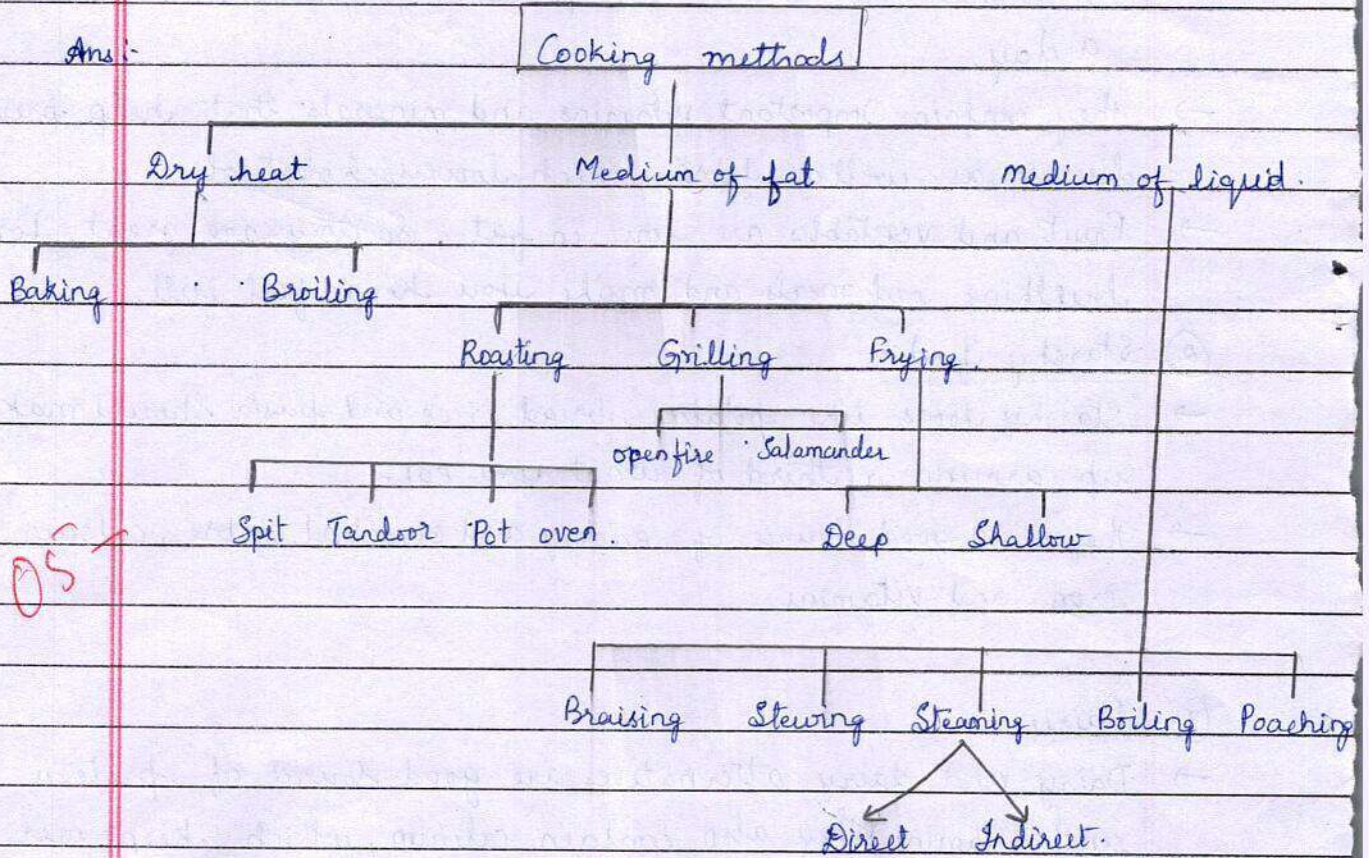 Ans:-
Cooking methods
Dry heat Medium of fat Medium of liquid.
Baking Broiling
Roasting Grilling Frying.
open fire Salamander
Spit Tandoor Pot oven. Deep Shallow
05
Braising Stewing Steaming Boiling Poaching
Direct Indirect.